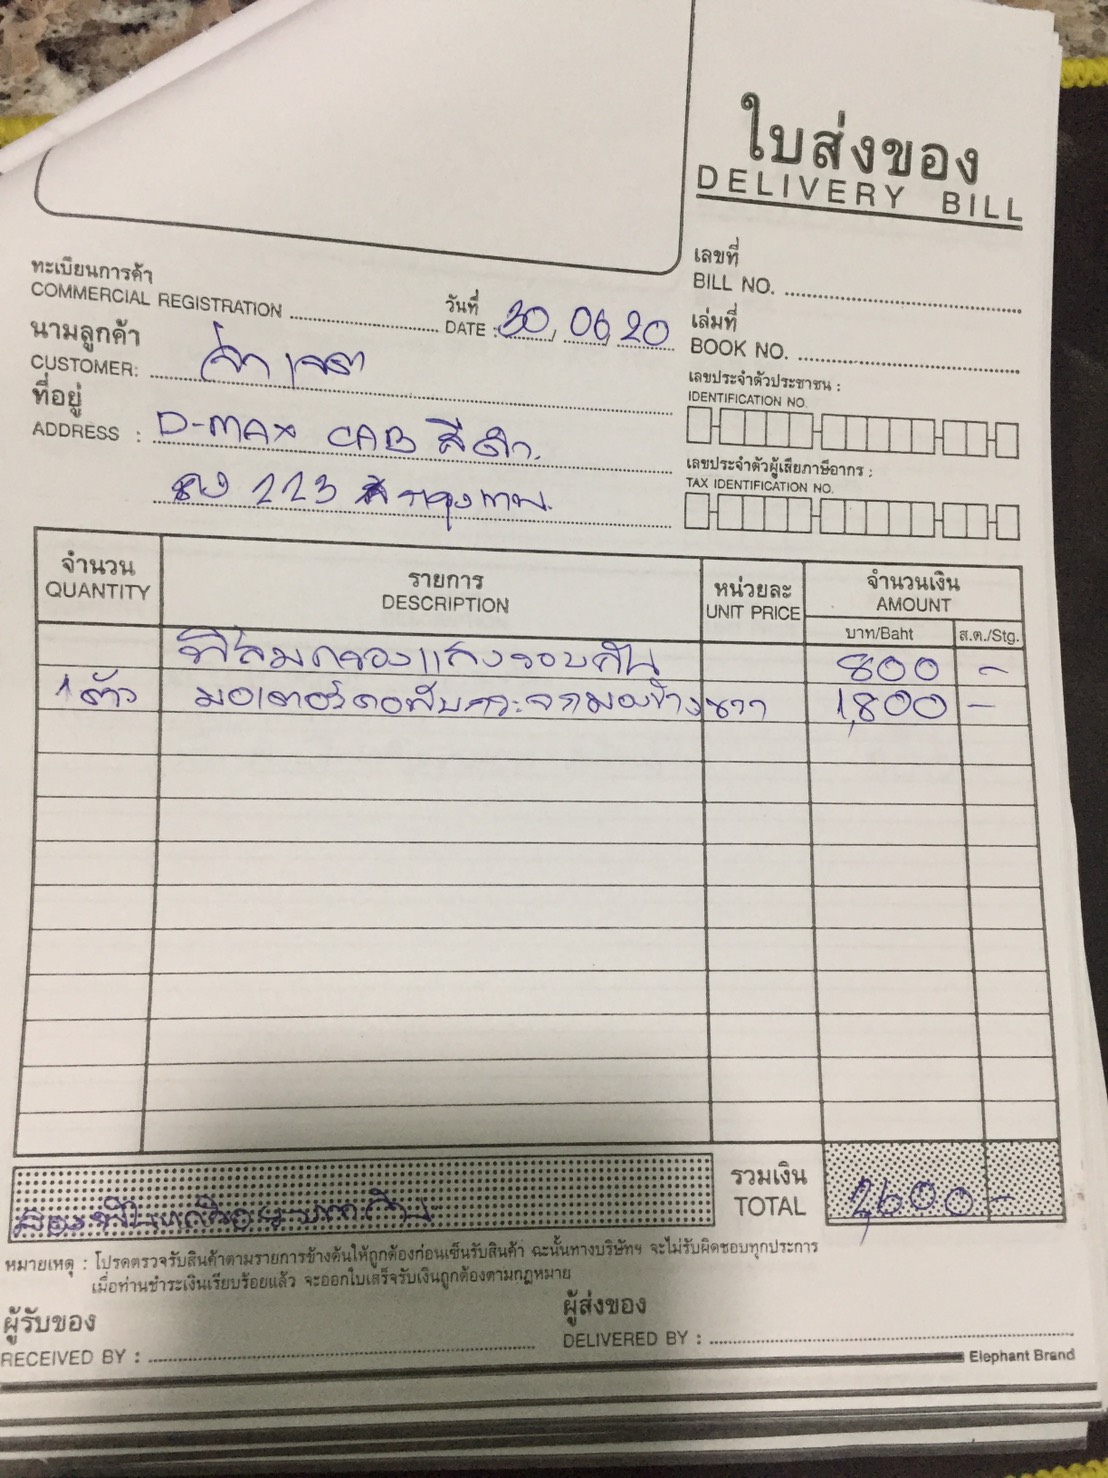 ใบส่งของ
DELIVERY BILL
เลขที่
BILL NO.
ทะเบียนการค้า
COMMERCIAL REGISTRATION
วันที่
DATE : 30, 06, 20
เล่มที่
BOOK NO.
นามลูกค้า
CUSTOMER:
เลขประจำตัวประชาชน :
IDENTIFICATION NO.
ที่อยู่
ADDRESS : D-MAX CAB สีดำ.
223 กรุงเทพ.
เลขประจำตัวผู้เสียภาษีอากร :
TAX IDENTIFICATION NO.
จำนวน รายการ หน่วยละ จำนวนเงิน
QUANTITY DESCRIPTION UNIT PRICE AMOUNT
บาท/Baht ส.ต./Stg.
ฟิล์มกรองแสงรอบคัน 800 -
1 ตัว มอเตอร์คอพับกระจกมองข้างขวา 1,800 -
รวมเงิน
TOTAL 2,600 -
สองพันหกร้อยบาทถ้วน
หมายเหตุ : โปรดตรวจรับสินค้าตามรายการข้างต้นให้ถูกต้องก่อนเซ็นรับสินค้า ฉะนั้นทางบริษัทฯ จะไม่รับผิดชอบทุกประการ
เมื่อท่านชำระเงินเรียบร้อยแล้ว จะออกใบเสร็จรับเงินถูกต้องตามกฎหมาย
ผู้รับของ
RECEIVED BY :
ผู้ส่งของ
DELIVERED BY :
Elephant Brand